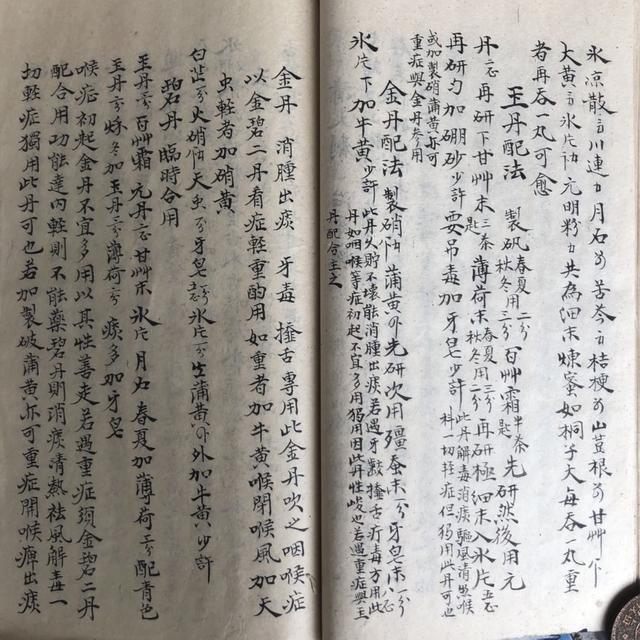 氷涼散 川連 月石 苦参 桔梗 山荳根 甘艸
大黄 氷片 元明粉 共為細末煉蜜如桐子大每吞一丸重
者再吞一丸可愈
玉丹配法 製矾 春夏用二分 秋冬用三分 百艸霜 半匙 先研然後用元
丹 再研下甘艸末 三匙 薄荷末 春夏用三分 秋冬用二分 再研極細末入氷片
再研勻加硼砂少許要吊毒加牙皂少許 此丹解毒消痰驅風清熱喉科一切輕症但獨用此丹可也
或加製硝蒲黄亦可重症與金丹参用
金丹配法 製硝 蒲黄 先研次用殭蚕末 牙皂末
氷片下加牛黄少許 此丹久貯不壊能消腫出痰若遇牙 舌 毒方用此丹如咽喉等症初起不宜多用獨用因此丹性 也若遇重症與玉丹配合主之
金丹 消腫出痰 牙毒 舌專用此金丹吹之咽喉症
以金碧二丹看症輕重酌用如重者加牛黄喉閉喉風加天
虫輕者加硝黄
白芷 火硝 天虫 牙皂 氷片 生蒲黄 外加牛黄少許
碧丹臨時合用
玉丹 百艸霜 元丹 甘艸末 氷片 月石 春夏加薄荷 配青色
玉丹 秋冬加玉丹 薄荷 痰多加牙皂
喉症初起金丹不宜多用以其性善走若遇重症須金碧二丹
配合用功能達內輕則不能藥碧丹則消痰清熱祛風解毒一
切輕症獨用此丹可也若加製 蒲黄亦可重症開喉痺出痰